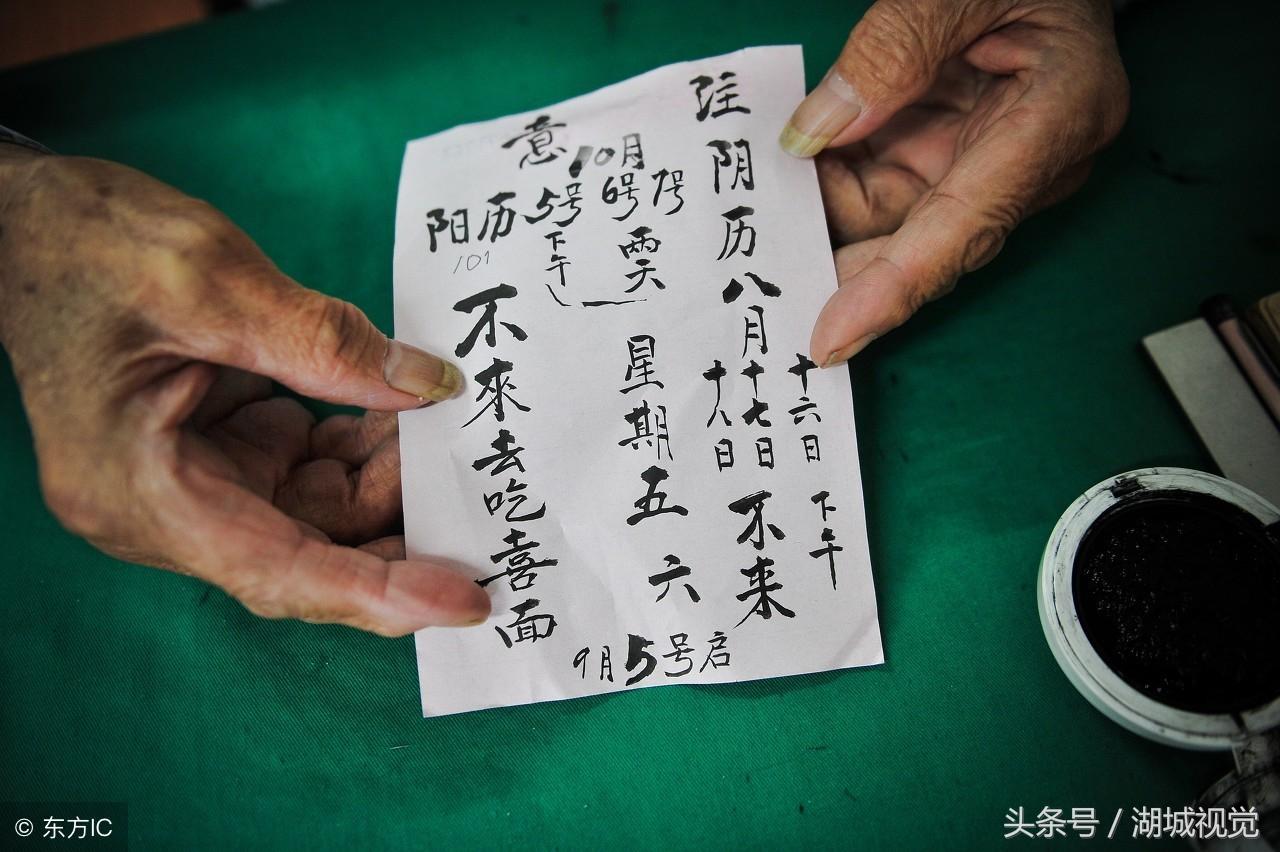 注意
阴历八月
十六日下午
十七日
十八日
不来
阳历10月
5号下午
6号7号
两天
星期五六
不來去吃喜面
101
9月5号启
© 东方IC
头条号 / 湖城视觉